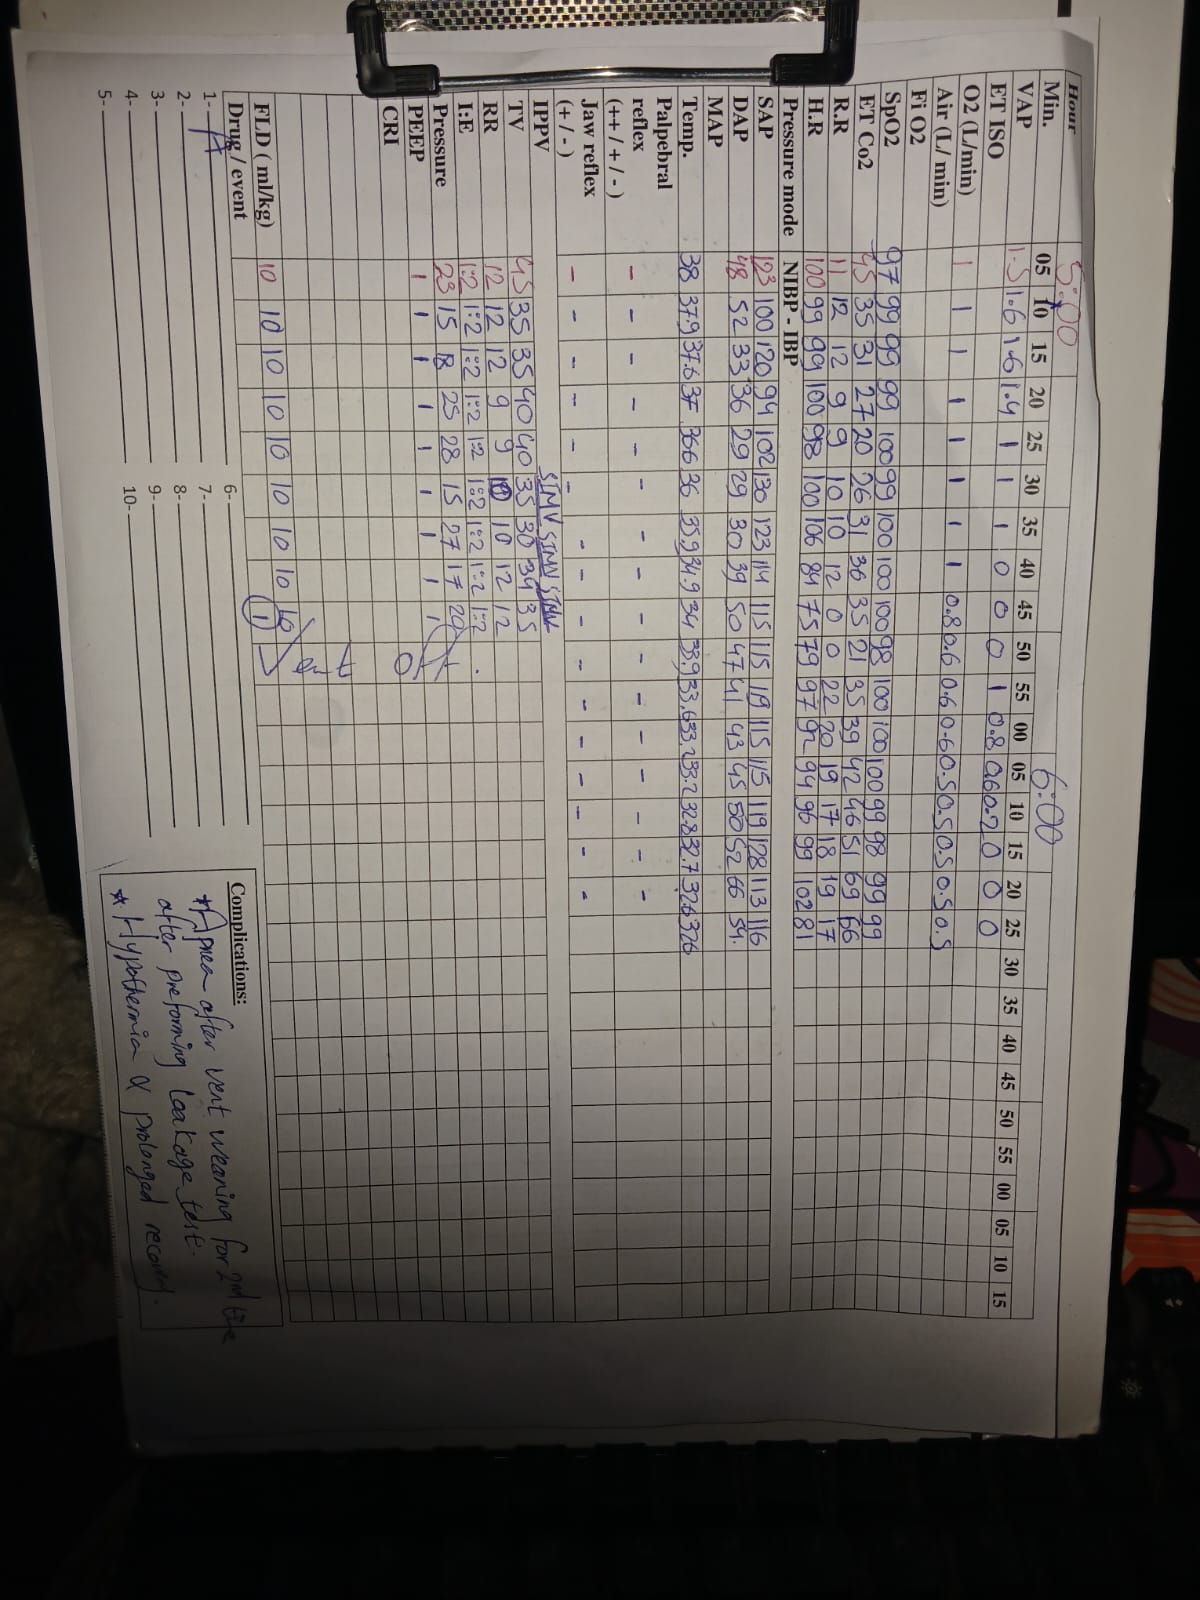 Hour 5:00 6:00
Min. 05 10 15 20 25 30 35 40 45 50 55 00 05 10 15 20 25 30 35 40 45 50 55 00 05 10 15
VAP 1.5 1.6 1.6 1.4 1 1 1 0 0 0 1 0.8 0.6 0.2 0 0 0
ET ISO
O2 (L/min) 1 1 1 1 1 1 1 1 0.8 0.6 0.6 0.6 0.5 0.5 0.5 0.5 0.5
Air (L/ min)
Fi O2
SpO2 97 99 99 99 100 99 100 100 100 98 100 100 100 99 98 99 99
ET Co2 45 35 31 27 20 26 31 36 35 21 35 39 42 46 51 69 66
R.R 11 12 12 9 9 10 10 12 0 0 22 20 19 17 18 19 17
H.R 100 99 99 100 98 100 106 84 75 79 97 92 94 96 99 102 81
Pressure mode NIBP - IBP
SAP 123 100 120 94 102 130 123 114 115 115 119 115 115 119 128 113 116
DAP 48 52 33 36 29 29 30 39 50 47 41 43 45 50 52 66 54.
MAP
Temp. 38 37.9 37.6 37 36.6 36 35.9 34.9 34 33.9 33.6 33.2 33.2 32.8 32.7 32.6 32.6
Palpebral
reflex - - - - - - - - - - - - - - - -
(++ / + / - )
Jaw reflex - - - - - - - - - - - - - - - -
(+ / - )
IPPV SIMV SIMV SIMV
TV 45 35 35 40 40 35 30 34 35
RR 12 12 12 9 9 10 10 12 12
I:E 1:2 1:2 1:2 1:2 1:2 1:2 1:2 1:2 1:2
Pressure 23 15 18 25 28 15 27 17 20
PEEP 1 1 1 1 1 1 1 1 1
CRI
FLD ( ml/kg) 10 10 10 10 10 10 10 10 10 1
Drug / event
1- A 6-
2- 7-
3- 8-
4- 9-
5- 10-
Complications:
* Apnea after vent weaning for 2nd time
after preforming leakage test.
* Hypothermia & prolonged recovery.